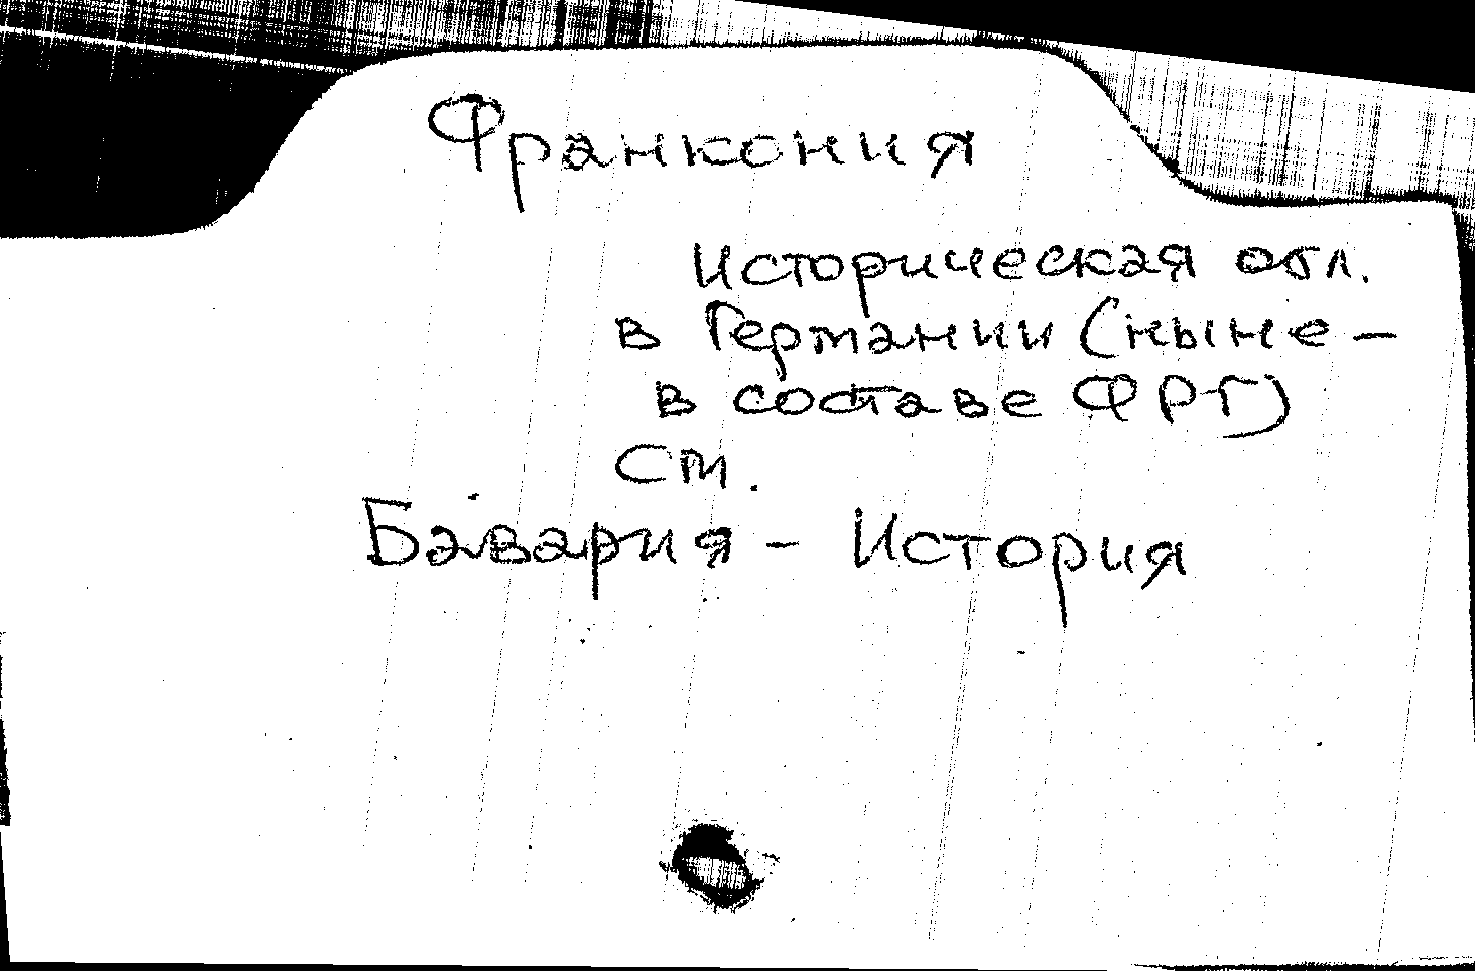 Франкония
Историческая обл.
в Германии (ныне –
в составе ФРГ)
См.
Бавария – История